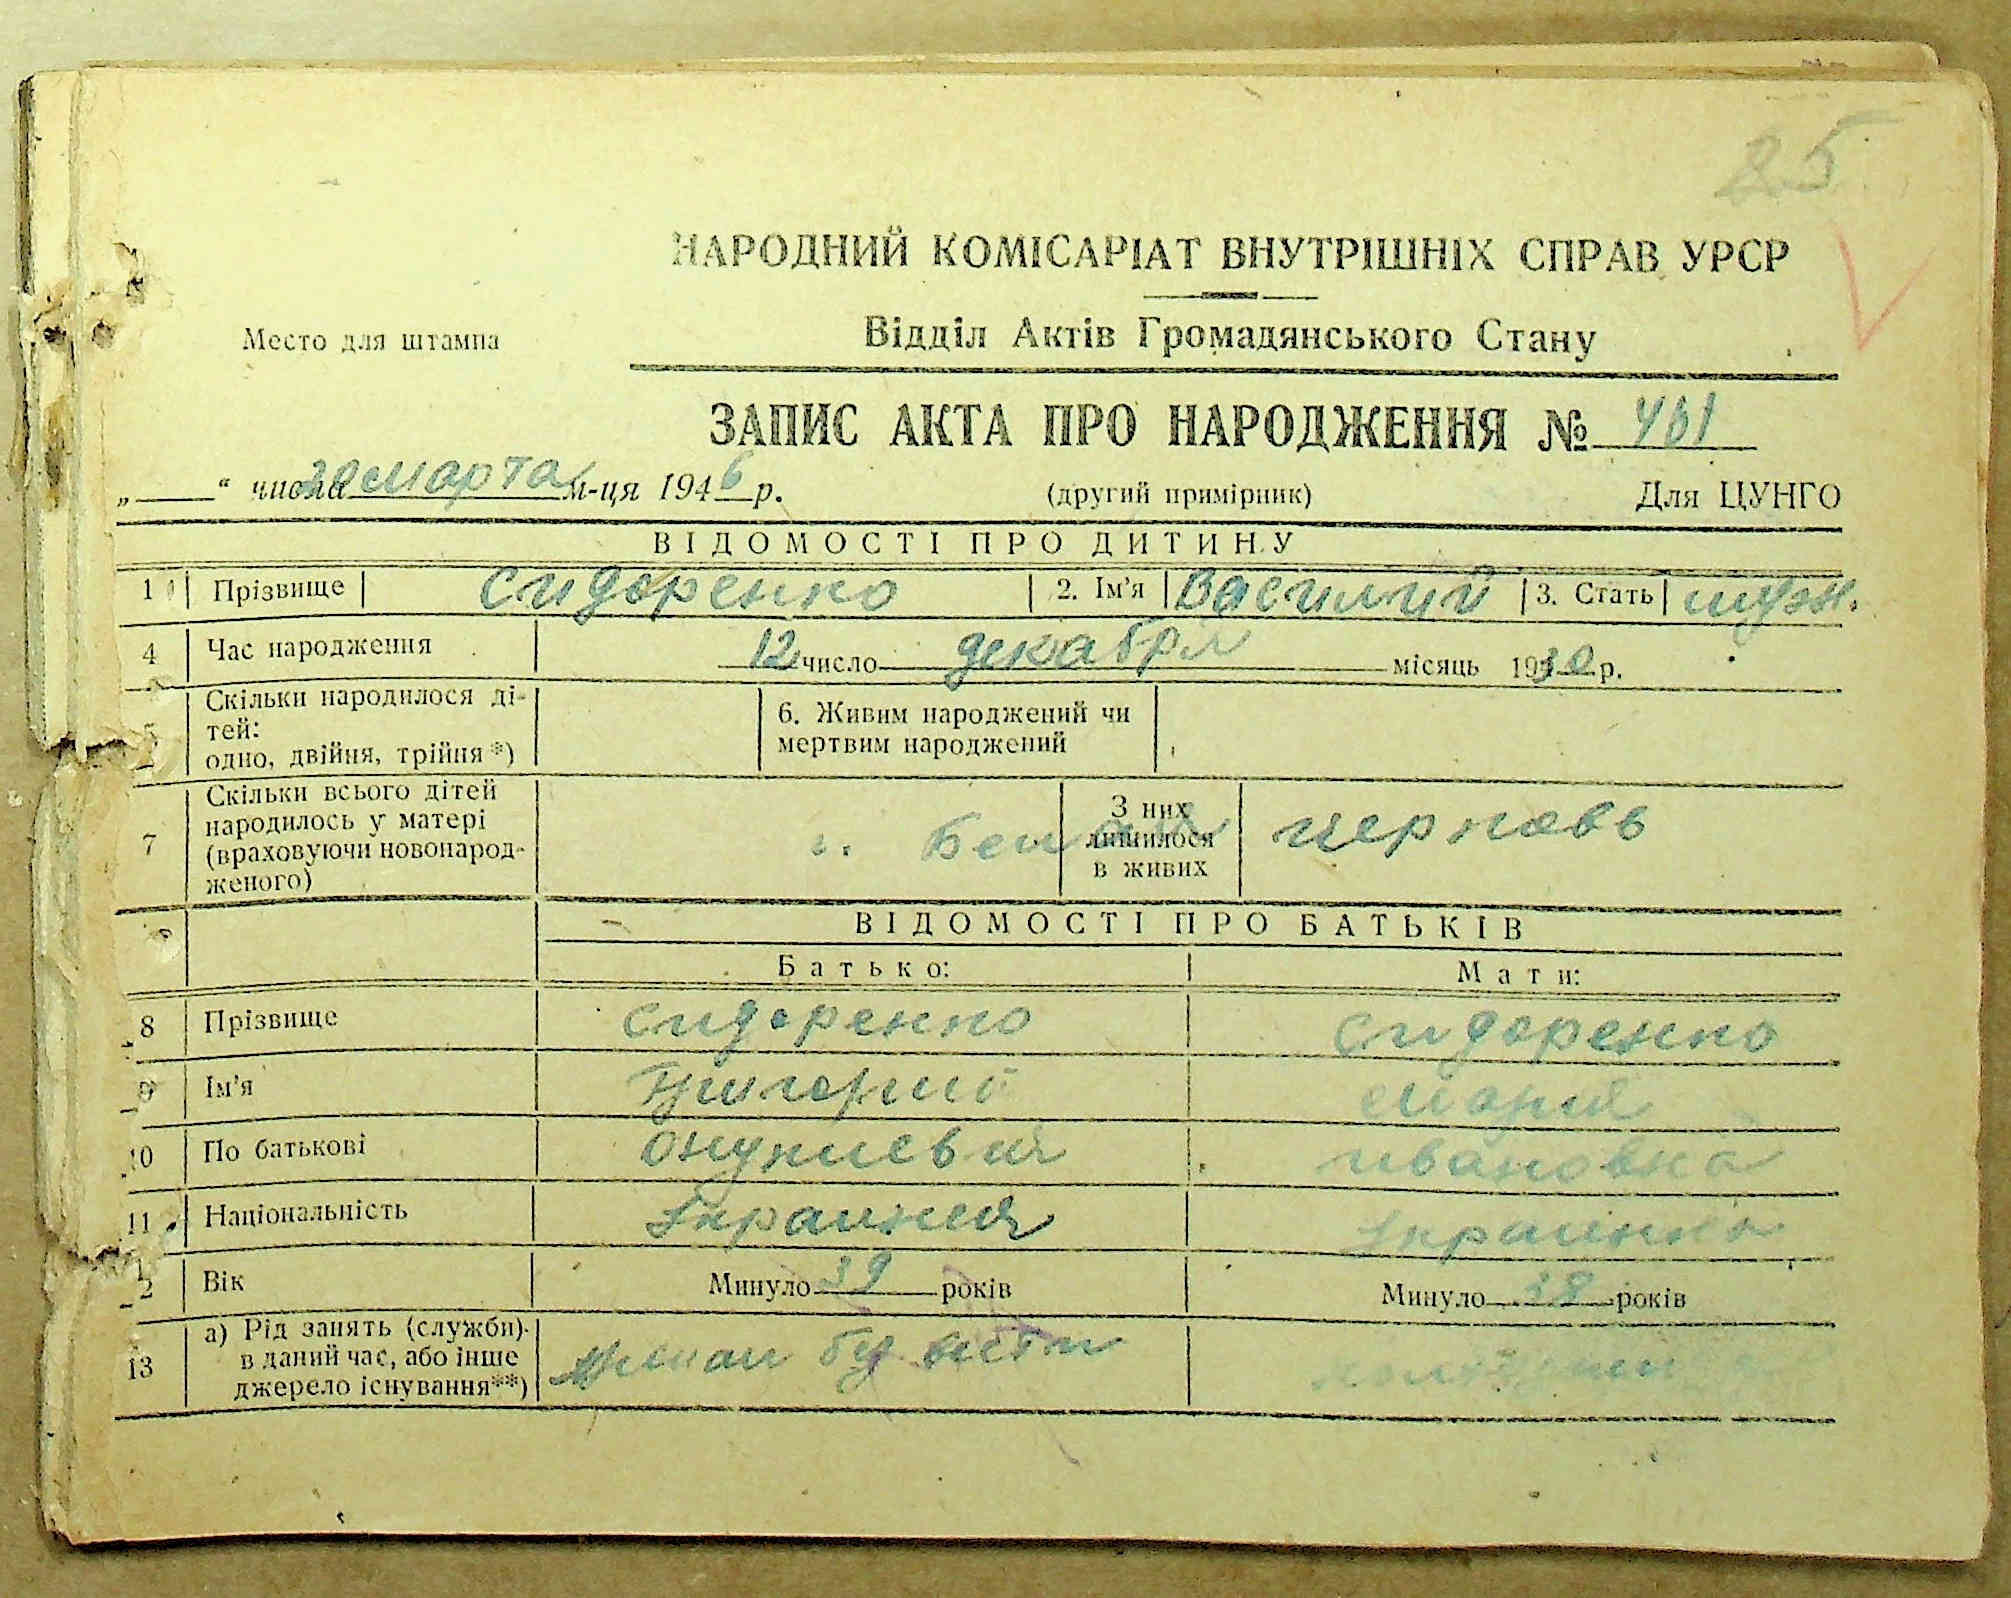 25
НАРОДНИЙ КОМІСАРІАТ ВНУТРІШНІХ СПРАВ УРСР
Место для штампа
Відділ Актів Громадянського Стану
ЗАПИС АКТА ПРО НАРОДЖЕННЯ № 461
„ “ числа марта м-ця 1946 р. (другий примірник) Для ЦУНГО
ВІДОМОСТІ ПРО ДИТИНУ
1 Прізвище Сидоренко 2. Ім'я Василий 3. Стать муж.
4 Час народження 12 число декабря місяць 1930 р.
5 Скільки народилося дітей: одно, двійня, трійня *) 6. Живим народжений чи мертвим народжений
7 Скільки всього дітей народилось у матері (враховуючи новонародженого) З них лишилося в живих
ВІДОМОСТІ ПРО БАТЬКІВ
Батько: Мати:
8 Прізвище Сидоренко Сидоренко
9 Ім'я Григорий Мария
10 По батькові Ивановна
11 Національність Украинец Украинка
12 Вік Минуло 39 років Минуло 38 років
13 а) Рід занять (служби) в даний час, або інше джерело існування**)